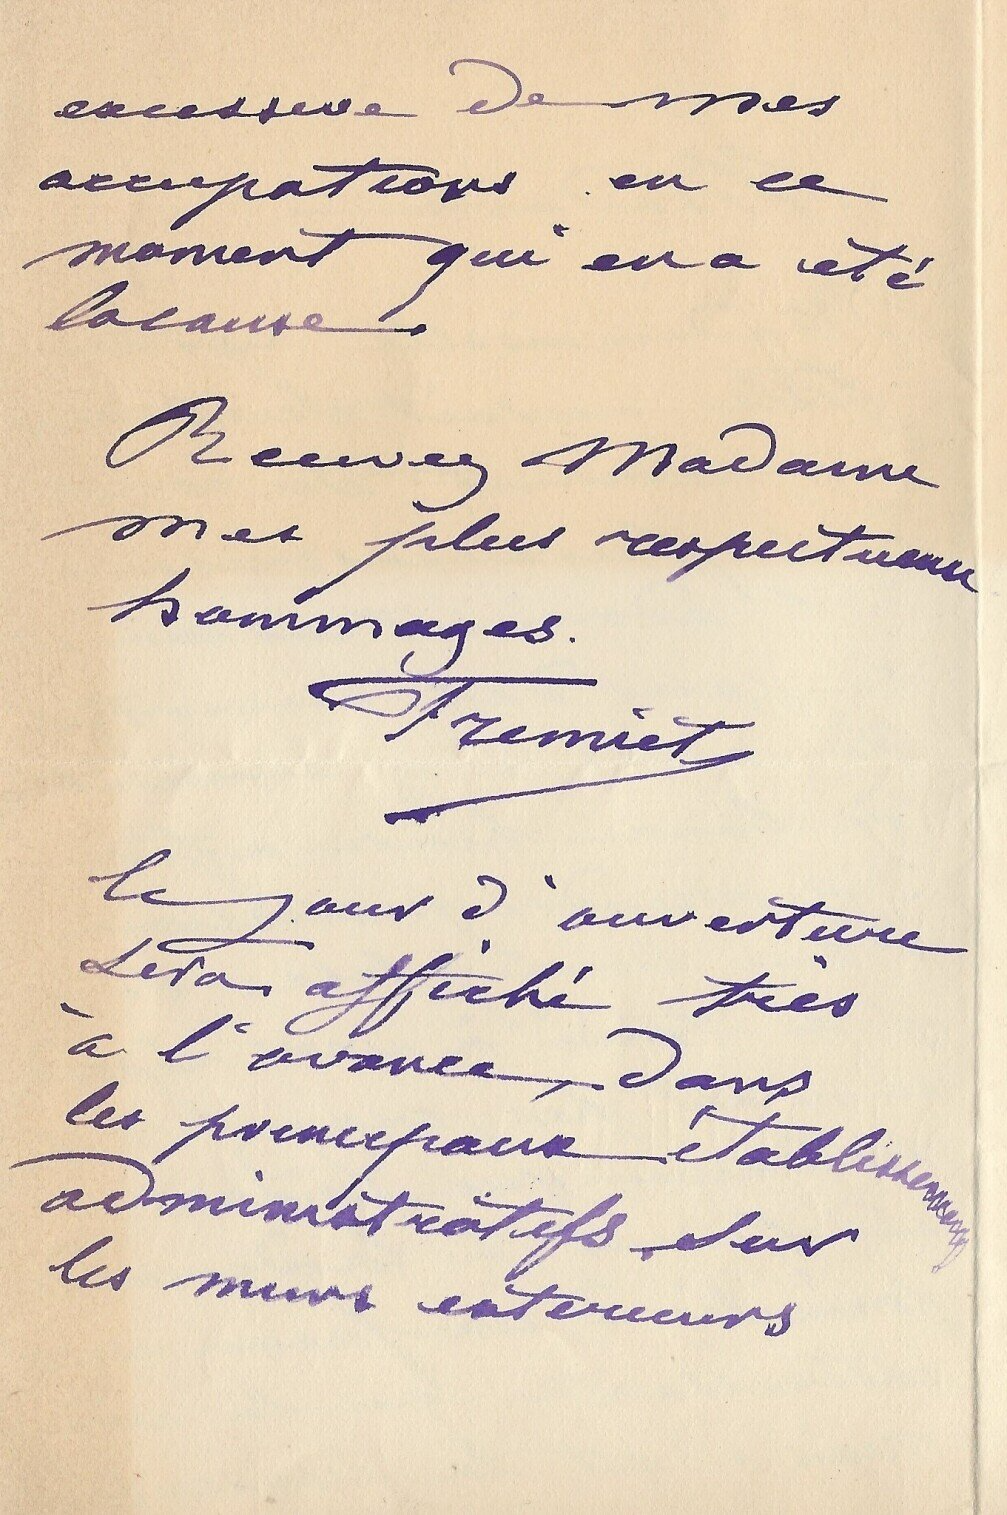 excessive de mes
occupations en ce
moment qui en a été
la cause.
Recevez Madame
mes plus respectueux
hommages.
Fremiet
le jour d'ouverture
sera affiché très
à l'avance, dans
les principaux établissements
administratifs sur
les murs exterieurs